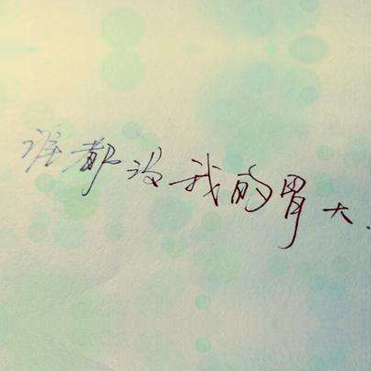 谁都没我的胃大.